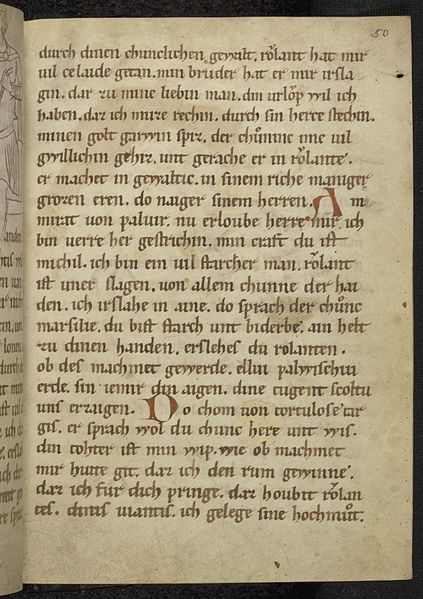 50
durch dinen chunclichen gewalt. rolant hat mir
uil ce laide getan. min bruder hat er mir irsla
gin. daz zu mine liebin man. din urlop wil ich
haben. daz ich muze rechin. durch sin herce stechin.
minen golt garwin spiz. der chuninc ime uil
gwillichin gehiz. unt gerache er in rolante.
er machet in gewaltic. in sinem riche maniger
grozen eren. do naiger sinem herren. Am
mirat uon palvir. nu erloube herre mir. ich
bin uerre her gestrichin. min craft du ist
michil. ich bin ein uil starcher man. rolant
ist uner slagen. uon allem chunne der hai
den. ich irslahe in aine. do sprach der chunc
marsilie. du bist starch unt biderbe. ain helt
zu dinen handen. erslehes du rolanten.
ob des machmet gewerde. elliu palwischiu
erde. sin iemir din aigen. dine tugent scoltu
uns erzaigen. Do chom uon tortulose tar
gis. er sprach wol du chunc here unt wis.
din tohter ist min wip. wie ob machmet
mir hute git. daz ich den rum gewinne.
daz ich fur dich pringe. daz houbit rolan
tes. dinis uiantis. ich gelege sine hochmut.